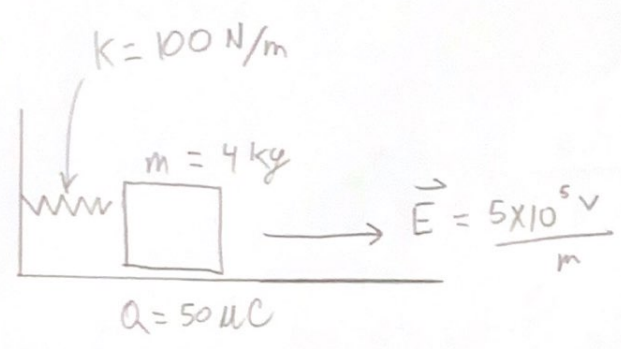 K = 100 N/m
m = 4 kg
E = 5X10⁵ V
m
Q = 50 μC